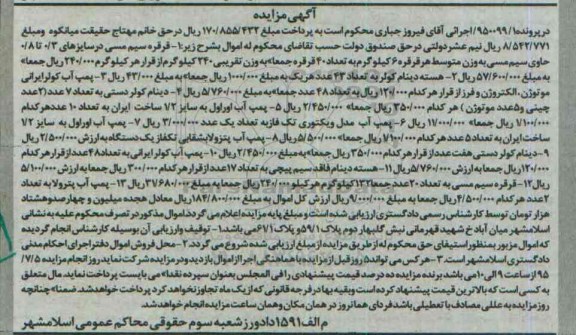 آگهی مزایده
در پرونده ۹۵۰۰۹۹/۱ اجرائی آقای فیروز جباری محکوم است به پرداخت مبلغ ۱۷۰/۸۵۵/۴۳۲ ریال در حق خانم مهتاج حقیقت میانکوه و مبلغ
۸/۵۴۲/۷۷۱ ریال نیم عشر دولتی در حق صندوق دولت حسب تقاضای محکوم له اموال بشرح زیر: ۱- قرقره سیم مسی در سایزهای ۰/۳ تا ۰/۸
حاوی سیم مسی به وزن متوسط هر قرقره ۶ کیلوگرم به تعداد ۴۰ قرقره جمعا به وزن تقریبی ۲۴۰ کیلوگرم از قرار هر کیلوگرم ۲۴۰/۰۰۰ ریال جمعا
به مبلغ ۵۷/۶۰۰/۰۰۰ ریال ۲- هسته دینام کولر به تعداد ۴۳ عدد هر یک به مبلغ ۱۰۰/۰۰۰ ریال جمعا به مبلغ ۴/۳۰۰/۰۰۰ ریال ۳- پمپ آب کولر ایرانی
موتوژن، الکتروژن و فرز از قرار هر کدام ۱۲۰/۰۰۰ ریال به تعداد ۴۸ عدد جمعا به مبلغ ۵/۷۶۰/۰۰۰ ریال ۴- دینام کولر دستی به تعداد ۷ عدد (۲ عدد
چینی و ۵ عدد موتوژن) هر کدام ۳۵۰/۰۰۰ ریال جمعا ۲/۴۵۰/۰۰۰ ریال ۵- پمپ آب اوراول به سایز ۷/۲ ساخت ایران به تعداد ۱۰ عدد هر کدام
۱/۷۰۰/۰۰۰ جمعا ۱۷/۰۰۰/۰۰۰ ریال ۶- پمپ آب مدل ویکتوری تک فاز به تعداد یک عدد ۳/۰۰۰/۰۰۰ ریال ۷- پمپ آب اوراول به سایز ۷/۲
ساخت ایران به تعداد ۵ عدد هر کدام ۱/۱۰۰/۰۰۰ ریال جمعا ۵/۵۰۰/۰۰۰ ریال ۸- پمپ آب پنترولا بشقابی تکفاز یک دستگاه به ارزش ۲/۵۰۰/۰۰۰ ریال
۹- دینام کولر دستی هفت عدد از قرار هر کدام ۳۵۰/۰۰۰ ریال جمعا به مبلغ ۲/۴۵۰/۰۰۰ ریال ۱۰- پمپ آب کولر ایرانی به تعداد ۴۸ عدد از قرار هر کدام
۱۲۰/۰۰۰ ریال جمعا به ارزش ۵/۷۶۰/۰۰۰ ریال ۱۱- هسته دینام فاقد سیم پیچی به تعداد ۱۷ عدد از قرار هر کدام ۳۰۰/۰۰۰ ریال جمعا به ارزش ۵/۱۰۰/۰۰۰
ریال ۱۲- قرقره سیم مسی به تعداد ۲۰ عدد جمعا هر کیلو گرم ۲۴۰/۰۰۰ ریال جمعا به مبلغ ۳۷/۶۸۰/۰۰۰ ریال ۱۳- پمپ آب پترولا به تعداد
۲ عدد هر کدام ۴/۵۰۰/۰۰۰ ریال جمعا به مبلغ ۹/۰۰۰/۰۰۰ ریال و ارزش کل اموال به مبلغ ۱۸۴/۸۰۰/۰۰۰ ریال معادل هجده میلیون و چهارصدوهشتاد
هزار تومان توسط کارشناس رسمی دادگستری ارزیابی شده است و مبلغ پایه مزایده اعلام می گردد اموال مذکور در تصرف محکوم علیه به نشانی
اسلامشهر میان آباد خ شهید قهرمانی نبش گلبهار دوم پلاک ۵۹/۱ و پلاک ۶۷۱ می باشد. ۱- توقیف و ارزیابی آن بوسیله کارشناس انجام گردیده
که اموال مزبور بمنظور استیفای حق محکوم له از طریق مزایده از مبلغ ارزیابی شده شروع می گردد. ۲- محل فروش اموال دفتر اجرای احکام مدنی
دادگستری اسلامشهر است. ۳- هرکس می تواند ۵ روز قبل از مزایده با هماهنگی اجرا از اموال بازدید و در مزایده شرکت نماید روز انجام مزایده ۷/۵/
۹۵ از ساعت ۹ الی ۱۰ می باشد برنده مزایده ده درصد قیمت پیشنهادی را فی المجلس بعنوان سپرده نقدا می بایست پرداخت نماید. مال متعلق
به کسی است که بالاترین قیمت پیشنهاد کرده است و بقیه بها در فرجه قانونی که از یک ماه تجاوز نخواهد کرد پرداخت خواهد شد. ضمنا چنانچه
روز مزایده به عللی مصادف با تعطیلی باشد فردای همانروز در همان مکان و همان ساعت مزایده انجام خواهد شد.
م الف ۱۵۹۱ دادورز شعبه سوم حقوقی محاکم عمومی اسلامشهر